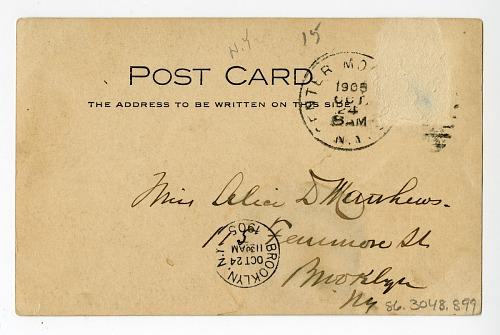 N.Y.
15
POST CARD
THE ADDRESS TO BE WRITTEN ON THIS SIDE
CENTER MO
1905
OCT
24
8AM
N.Y.
Miss Alice D Matthews.
Kenmore St
Brooklyn
Ny
BROOKLYN, N.Y.
OCT 24
11 30AM
1905
86.3048.899